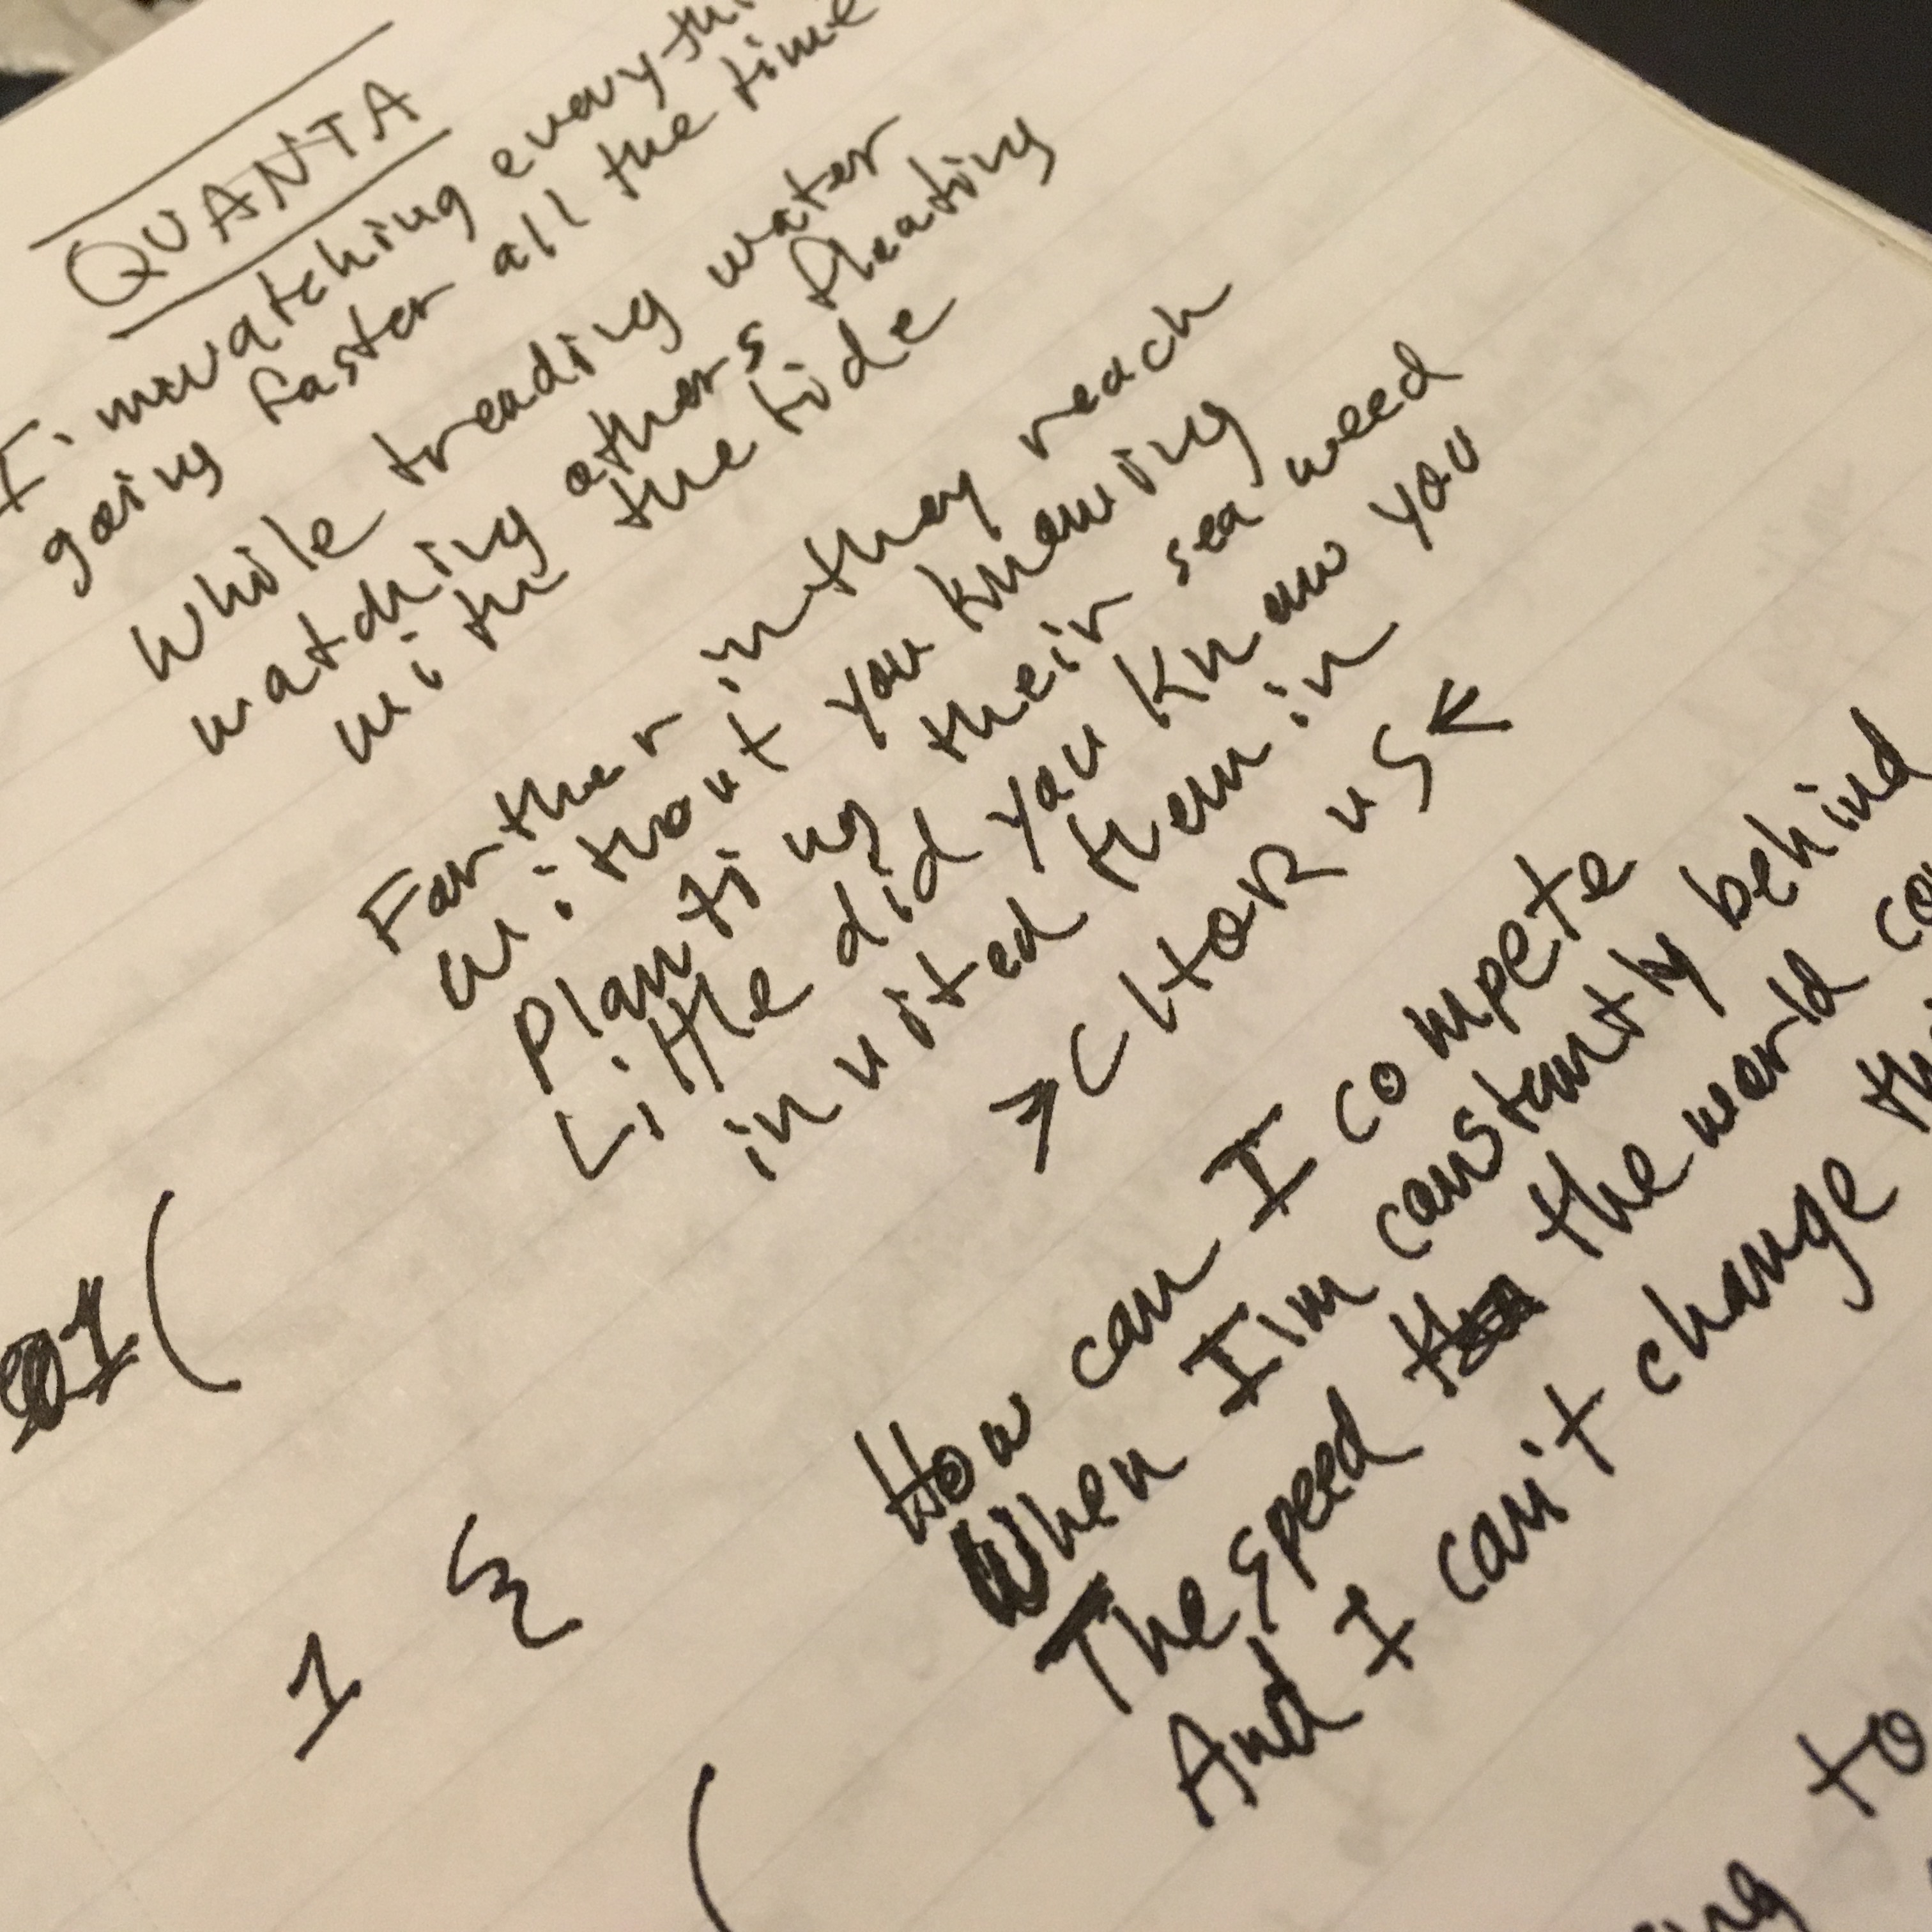 QUANTA
I'm watching everythi
going faster all the time
While treading water
watching others floating
with the tide
Farther in they reach
without you knowing
Planting their sea weed
Little did you know you
invited them in
> CHORUS <
1 (
How can I compete
When I'm constantly behind
The speed the world co
And I can't change th
1 {
(
to
ing